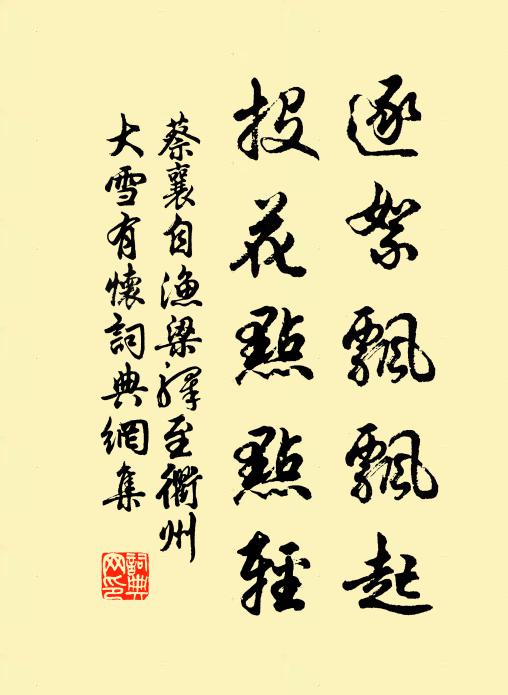 逐絮飄飄起
投花點點輕
蔡襄自漁梁驛至衢州
大雪有懷詞典網集
詞典
网印